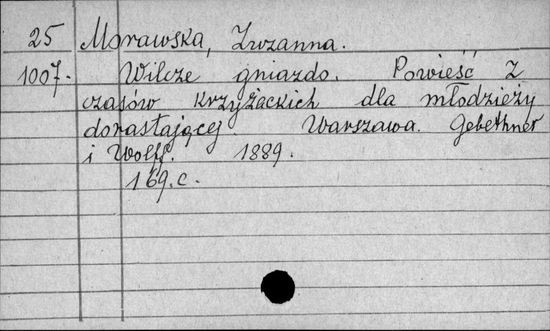 25 Morawska, Zuzanna.
1007. Wilcze gniazdo. Powieść z
czasów krzyżackich dla młodzieży
dorastającej. Warszawa. Gebethner
i Wolff. 1889.
169.c.